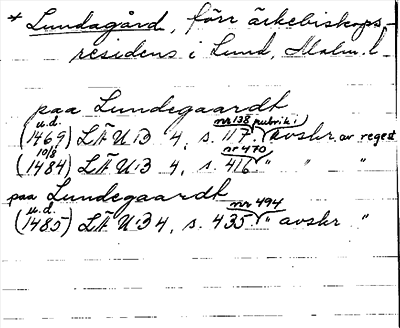 * Lundagård, förr ärkebiskops-
residens i Lund, Malm. l.
paa Lundegaardt
u.d. nr 138 rubrik i
(1469) LÄUB 4, s. 117 (avskr. av regest
10/8 nr 470
(1484) LÄUB 4, s. 416 " " "
paa Lundegaardt
u.d. nr 494
(1485) LÄUB 4, s. 435 (" avskr "